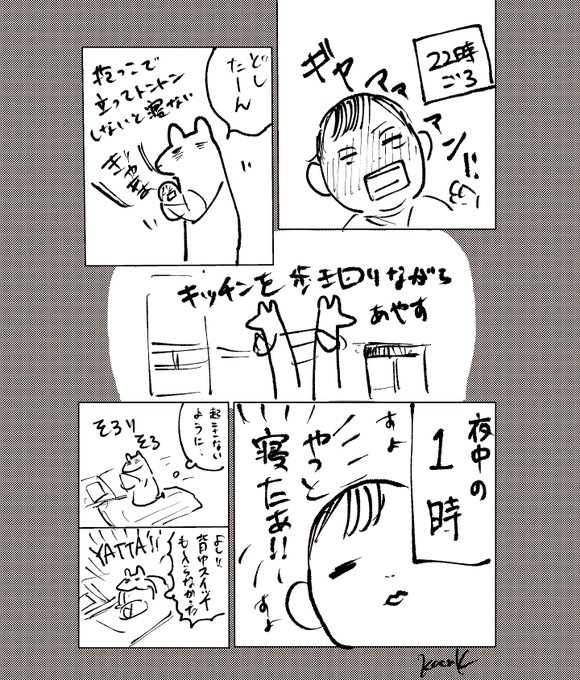 22時
ごろ
ギャアアアアン!!
どし
たーん
抱っこで
立ってトントン
しないと寝ない
ぎゃああ
キッチンを歩き回りながら
あやす
夜中の
1時
すよ
やっと
寝たあ!!
すよ
起きない
ように..
そろり
そろ
よし!!
背中スイッチ
も入らなかった
YATTA!!